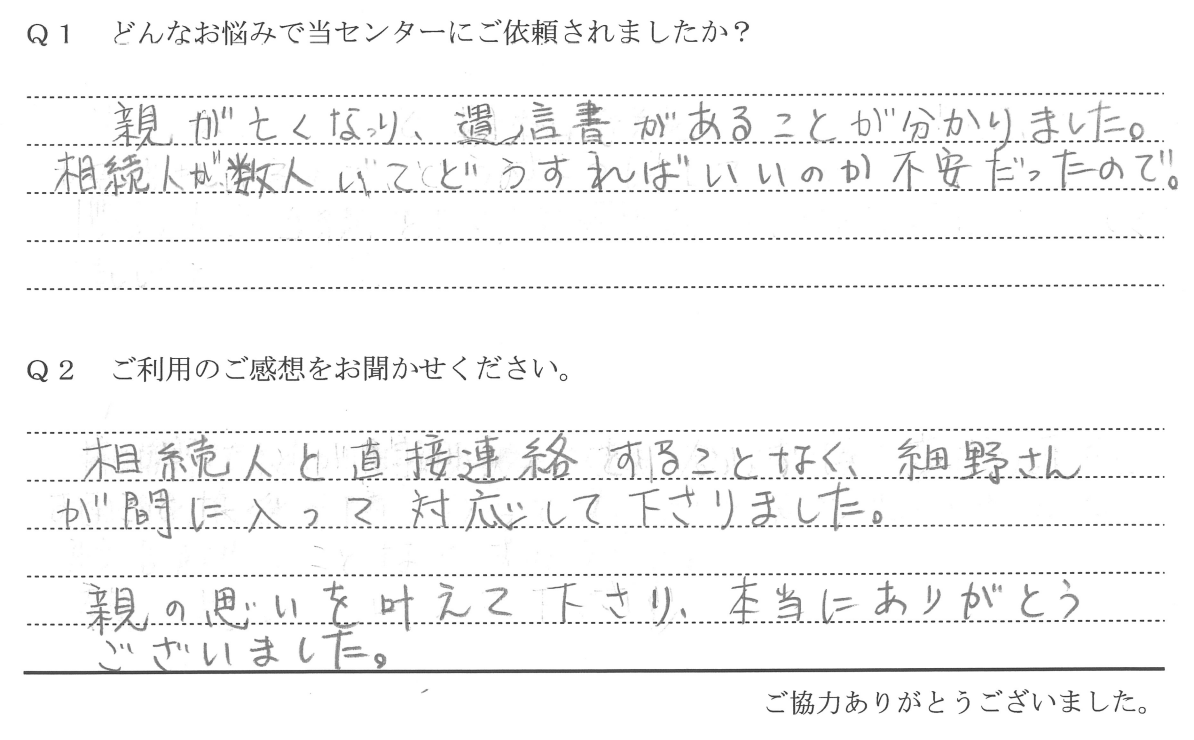 Q1 どんなお悩みで当センターにご依頼されましたか?
親が亡くなり、遺言書があることが分かりました。
相続人が数人いてどうすればいいのか不安だったので。
Q2 ご利用のご感想をお聞かせください。
相続人と直接連絡することなく、細野さん
が間に入って対応して下さりました。
親の思いを叶えて下さり、本当にありがとう
ございました。
ご協力ありがとうございました。